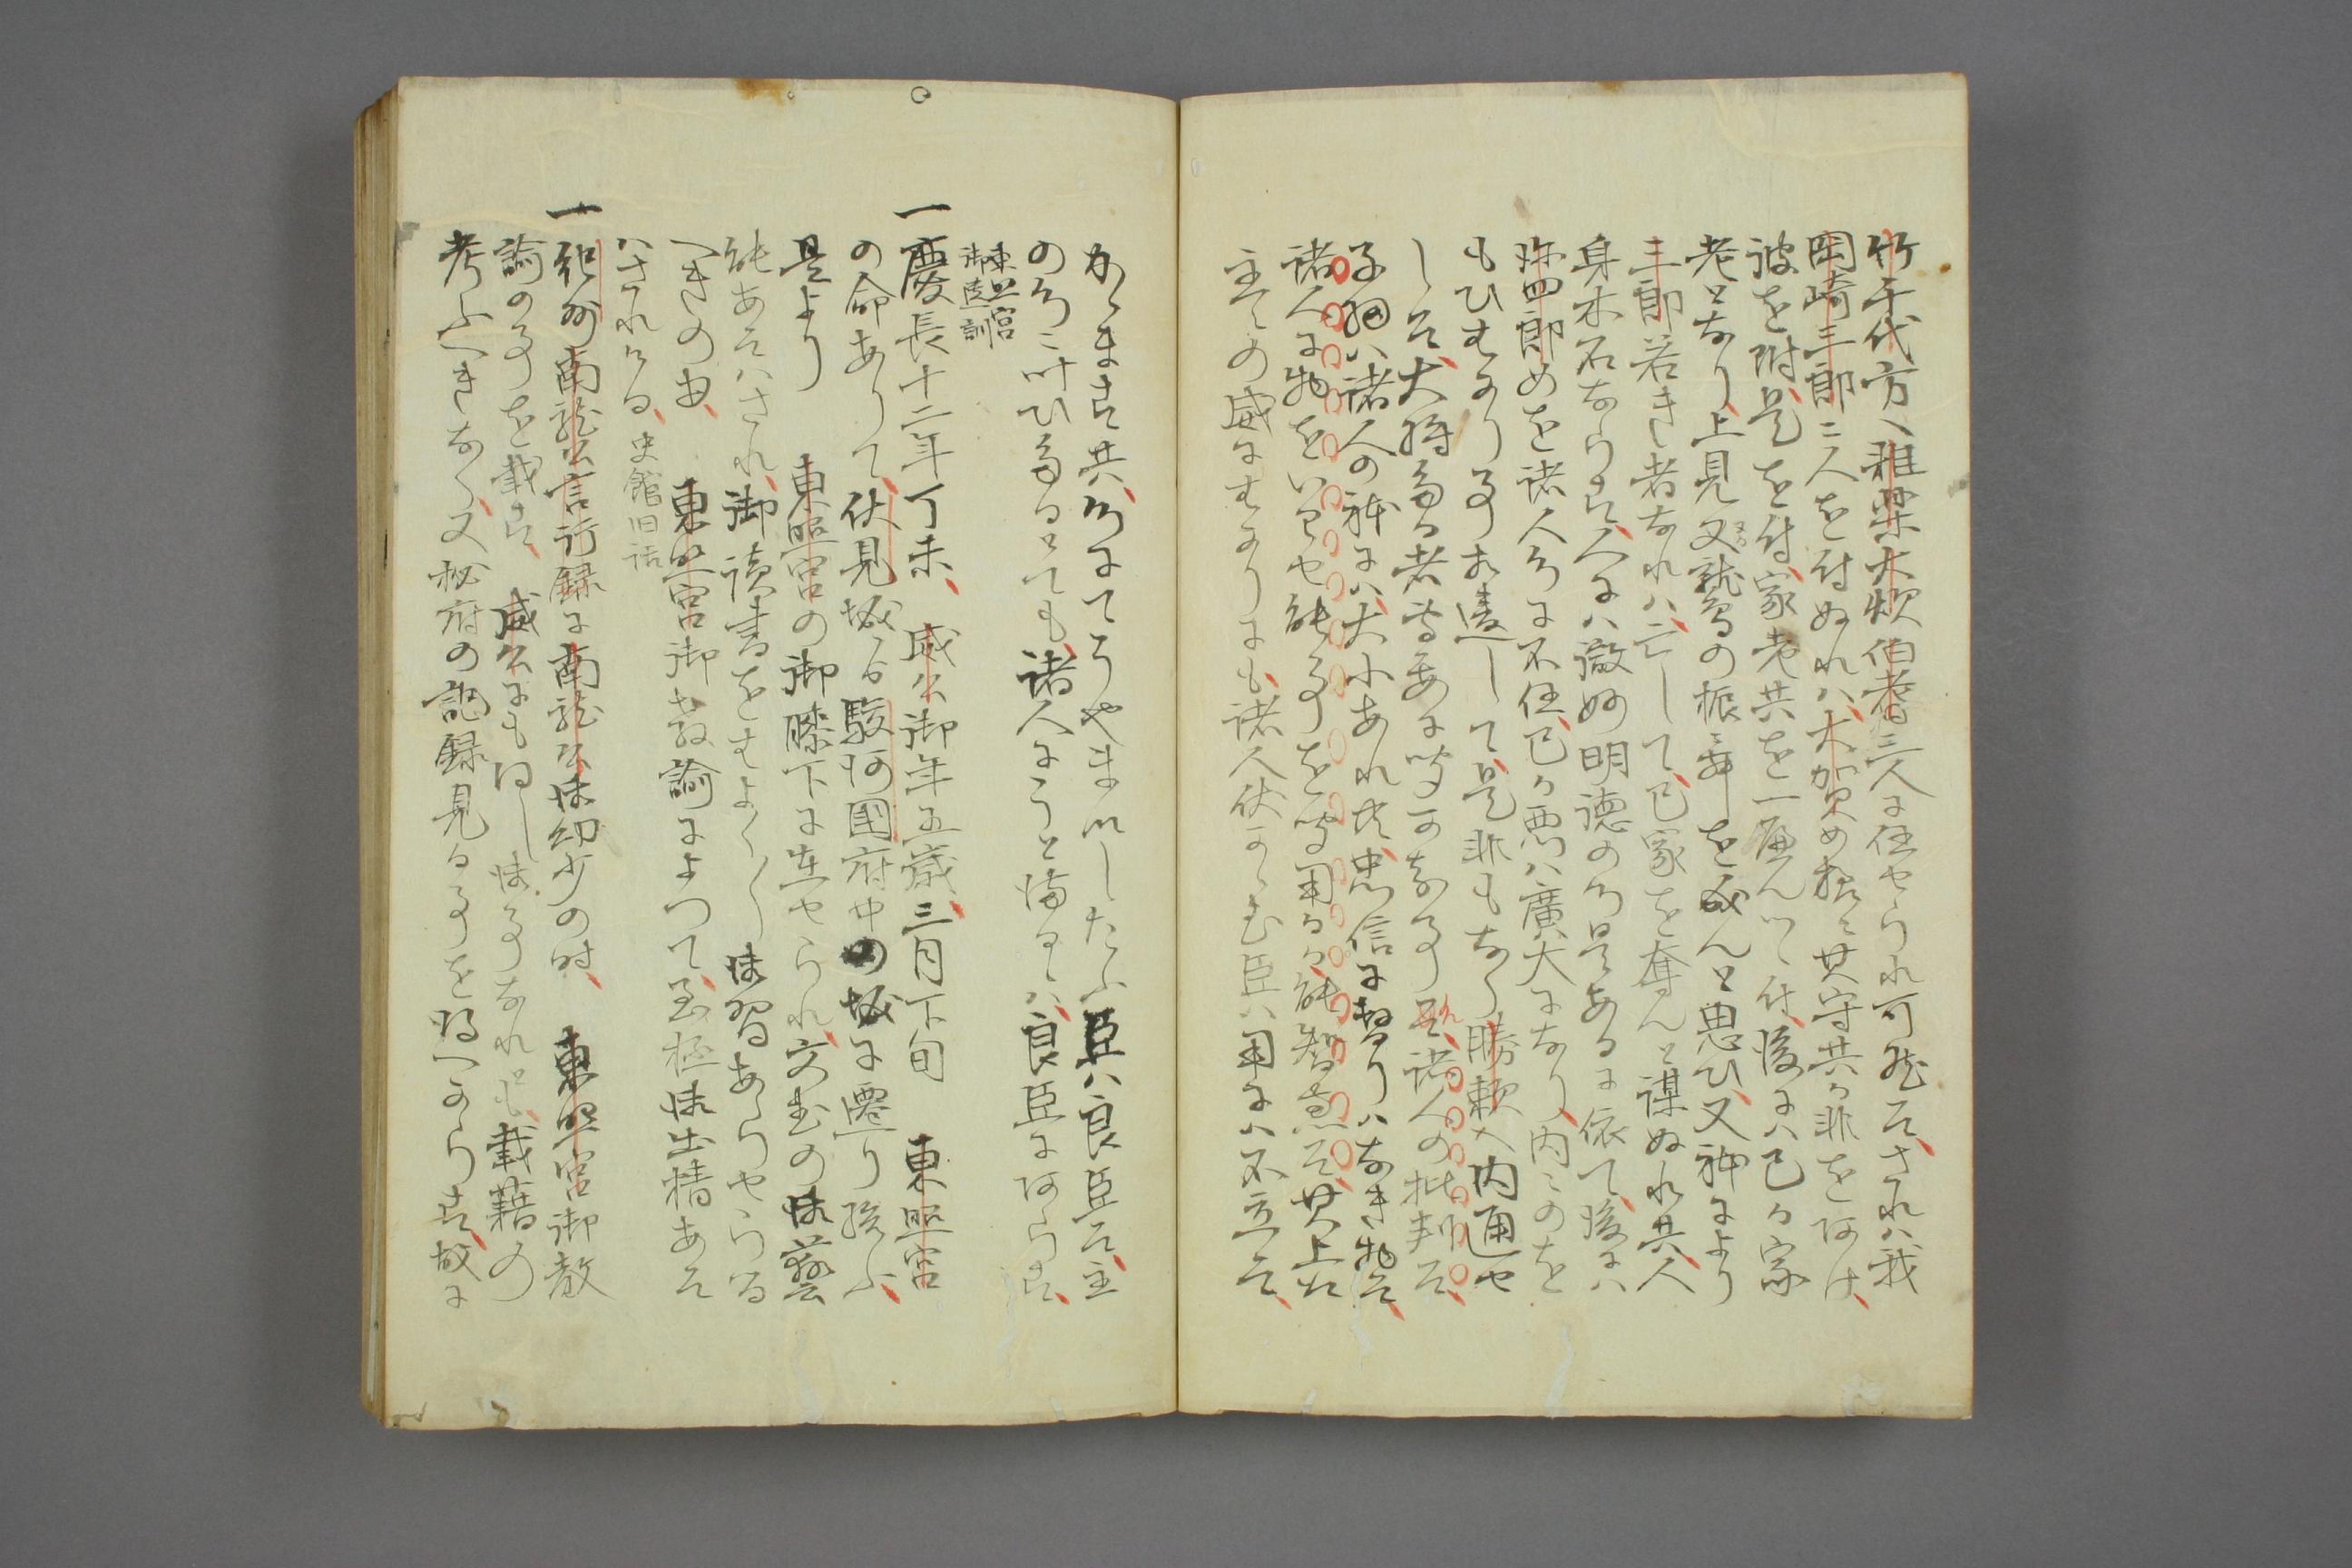 竹千代方へ雅樂大炊伯耆三人に任せられ可然そ、されハ我
岡崎三郎に二人を付ぬれハ、大賀め抔と其守共か非をあけ、
彼を附、是を付、家老共を一面んつゝ付、後にハ己か家
老となり、上見又鷲の振舞を成んと思ひ、又神により
三郎若き者なれハ、亡して、己家を奪んと謀ぬれ共、人
身木石ならす、人にハ霊妙明徳の心是あるに依て、後にハ
弥四郎めを諸人心に不任、己か悪ハ廣大になり、内々のを
もひなり事相違して、是非もなく、勝頼へ内通せ
しそ、大将たる者尊委に聞可なる事歟、諸人の批判そ、
子細ハ諸人の祿にハ、大小あれ共、忠信に替りハなき物そ、
諸人に物をいはせ、能事を聞用るか能智恵そ、其上は
主との威にたよりにも、諸人伏さゝむ臣ハ用にハ不立そ、
かゝます共、心にてうやまハしたふ臣ハ良臣そ、主
の心に叶ひたるとても、諸人にうと満るゝハ、良臣にあらす、
東照宮
御遺訓
一慶長十二年丁未、　威公御年五歳、三月下旬　東照宮
の命ありて、伏見城より駿河国府中の城に遷り給ふ、
是より　東照宮の御膝下に在せられ、文武の御藝
能あそハされ、御讀書をもよく〳〵御習あらせらる
へきの由、　東照宮御教諭によつて、至極御出精あそ
ハされける、史館旧話
一紀州南龍公言行録に、南龍公御幼少の時、　東照宮御教
諭の事を載す、　威公にも同し御事なれとも、載籍の
考ふへきなく、又秘府の記録見る事を得へからす、故に